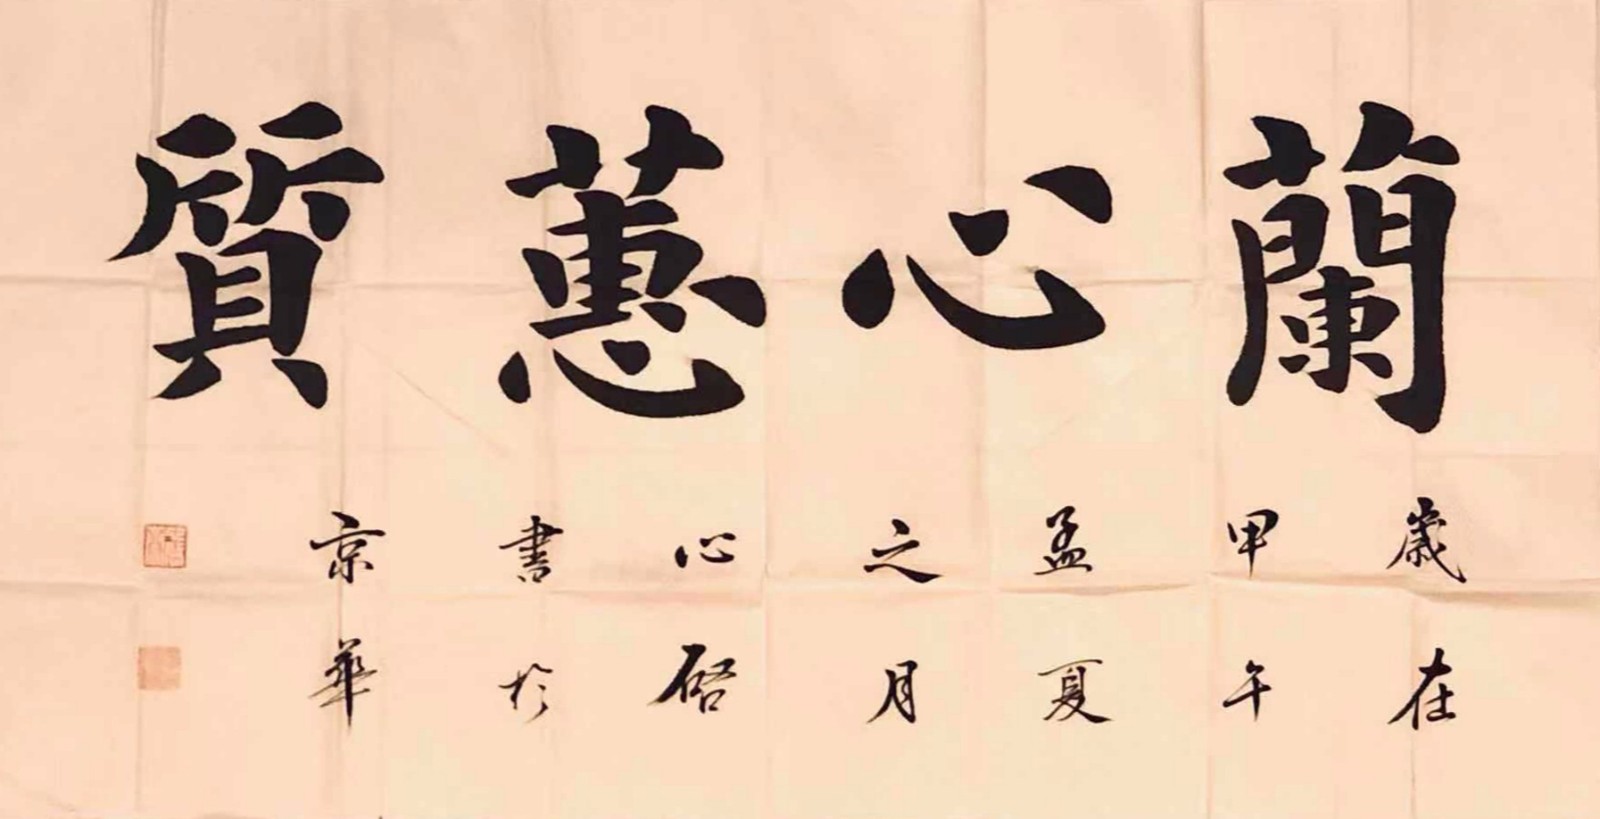 蘭心蕙質
歲在
甲午
孟夏
之月
心
書於
京華